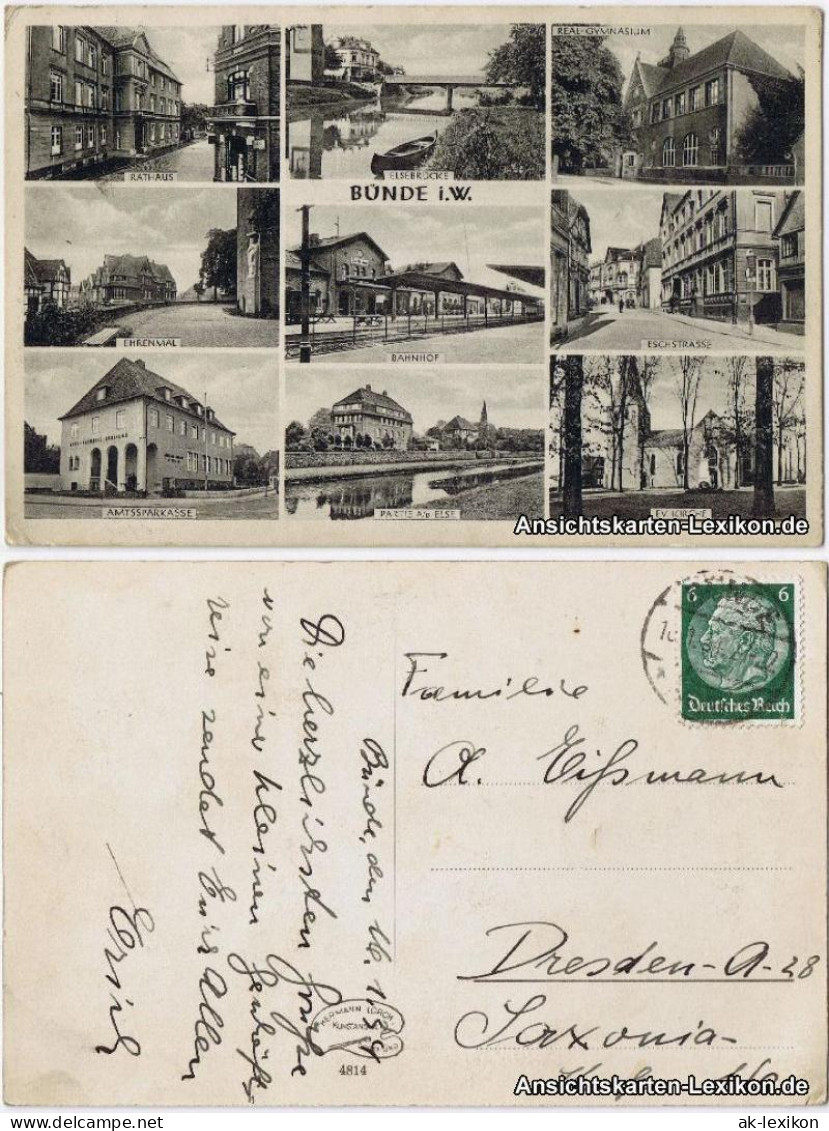 RATHAUS
ELSEBRÜCKE
REAL-GYMNASIUM
BÜNDE i.W.
EHRENMAL
BAHNHOF
ESCHSTRASSE
AMTSSPARKASSE
PARTIE A/D ELSE
EV. KIRCHE
Ansichtskarten-Lexikon.de
6 6
Deutsches Reich
Familie
A. Eißmann
Dresden-A-28
Saxonia-
Bünde, den 16.
Die herzlichsten Grüße
von einer kleinen
reise sendet Euch Allen
Erich
HERMANN LORCH
KUNSTANSTALT
4814
Ansichtskarten-Lexikon.de
www.delcampe.net
ak-lexikon